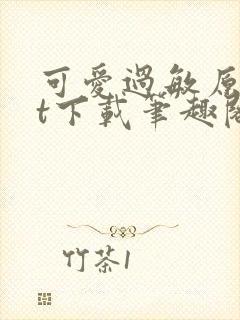 可愛過敏原
t下載筆趣閣
竹茶1